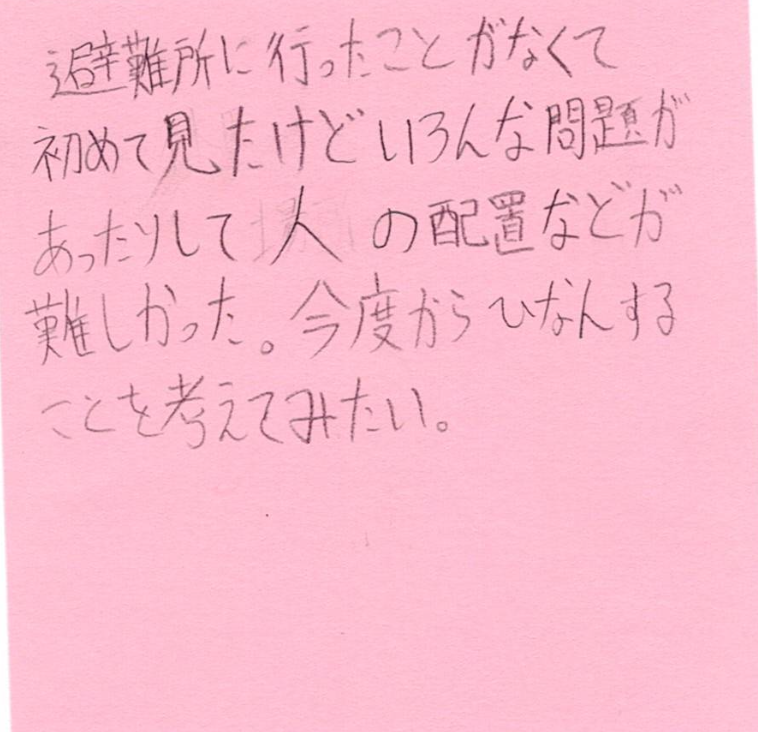 避難所に行ったことがなくて
初めて見たけどいろんな問題が
あったりして人の配置などが
難しかった。今度からひなんする
ことを考えてみたい。